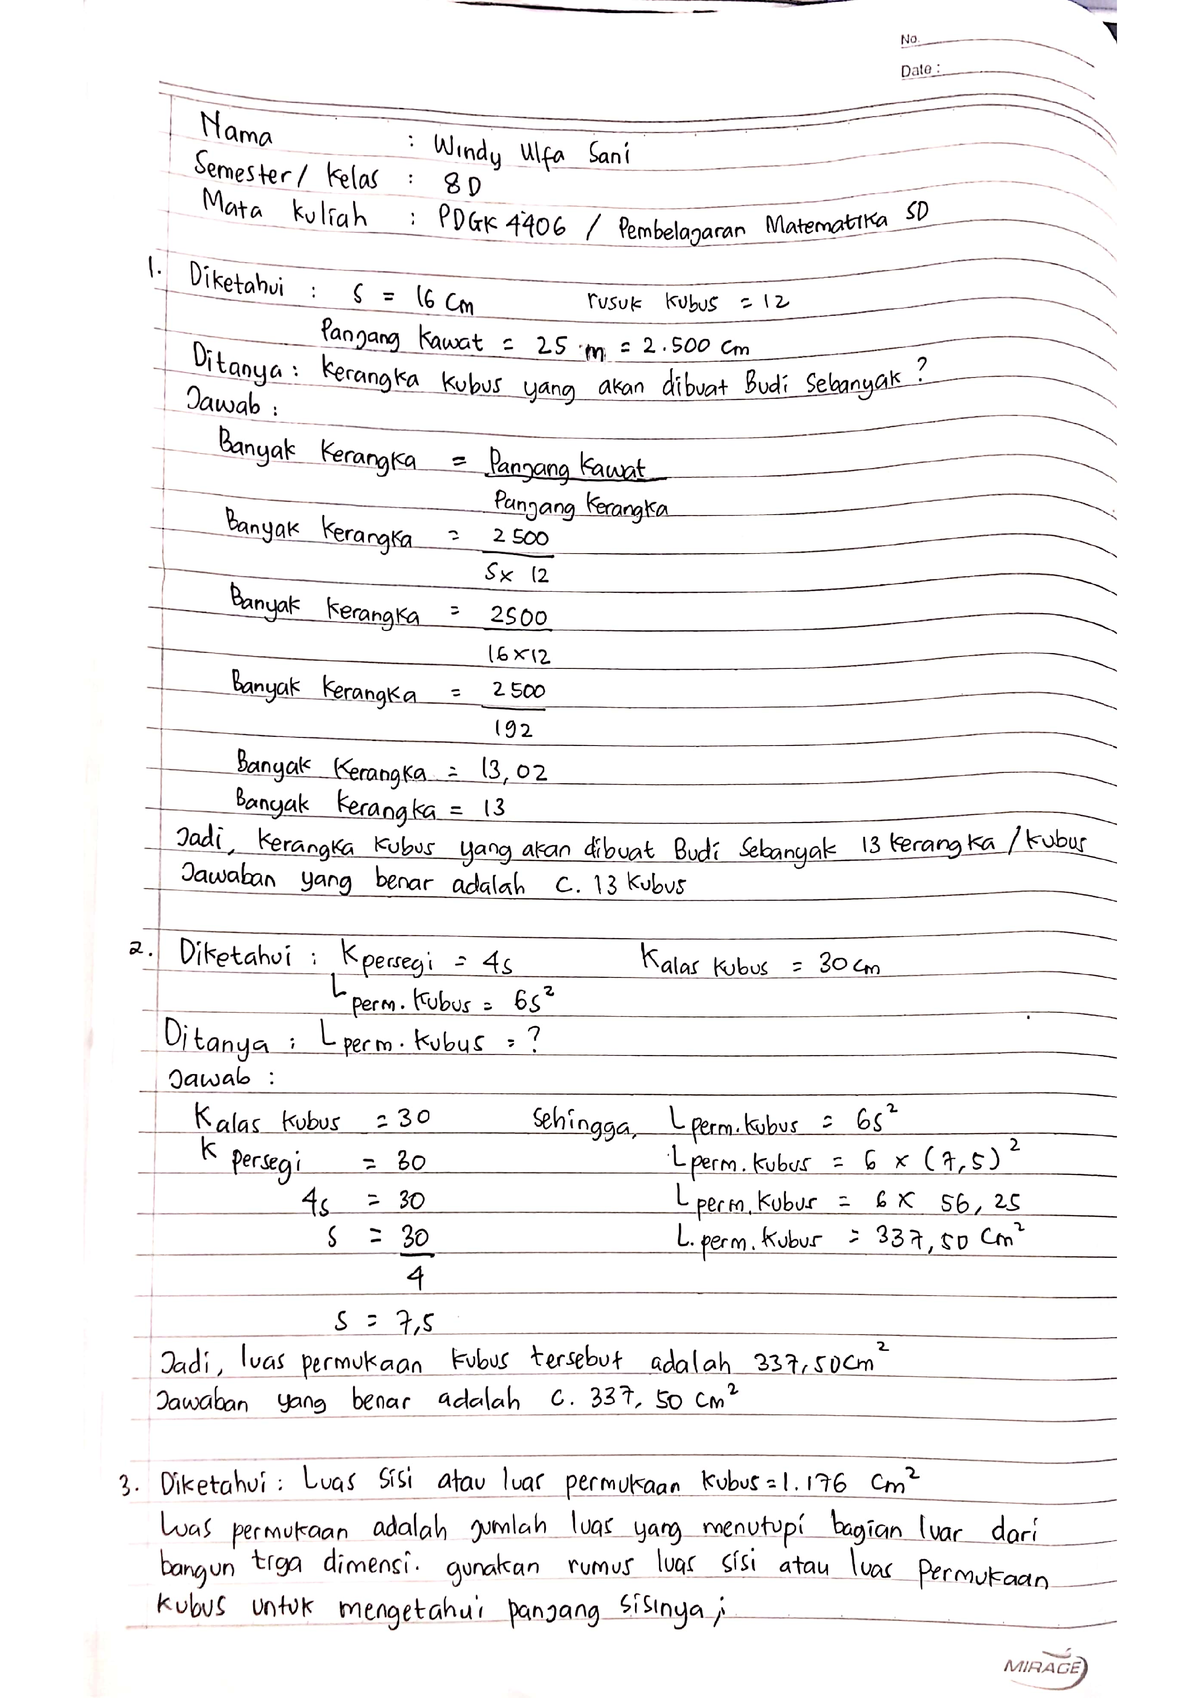 No.
Date :
Nama : Windy Ulfa Sani
Semester / Kelas : 8D
Mata kuliah : PDGK 4406 / Pembelajaran Matematika SD
1. Diketahui : s = 16 cm rusuk kubus = 12
Panjang kawat = 25 m = 2.500 cm
Ditanya : kerangka kubus yang akan dibuat Budi sebanyak ?
Jawab :
Banyak kerangka = Panjang kawat
Panjang kerangka
Banyak kerangka = 2500
s x 12
Banyak kerangka = 2500
16 x 12
Banyak kerangka = 2500
192
Banyak kerangka = 13,02
Banyak kerangka = 13
Jadi, kerangka kubus yang akan dibuat Budi sebanyak 13 kerangka / kubus
Jawaban yang benar adalah C. 13 kubus
2. Diketahui : K persegi = 4s K alas kubus = 30 cm
L perm. kubus = 6s²
Ditanya : L perm. kubus = ?
Jawab :
K alas kubus = 30 sehingga, L perm. kubus = 6s²
K persegi = 30 L perm. kubus = 6 x (7,5)²
4s = 30 L perm. kubus = 6 x 56,25
s = 30 L. perm. kubus = 337,50 cm²
4
s = 7,5
Jadi, luas permukaan kubus tersebut adalah 337,50 cm²
Jawaban yang benar adalah C. 337,50 cm²
3. Diketahui : Luas sisi atau luas permukaan kubus = 1.176 cm²
Luas permukaan adalah jumlah luas yang menutupi bagian luar dari
bangun tiga dimensi. gunakan rumus luas sisi atau luas permukaan
kubus untuk mengetahui panjang sisinya ;
MIRAGE